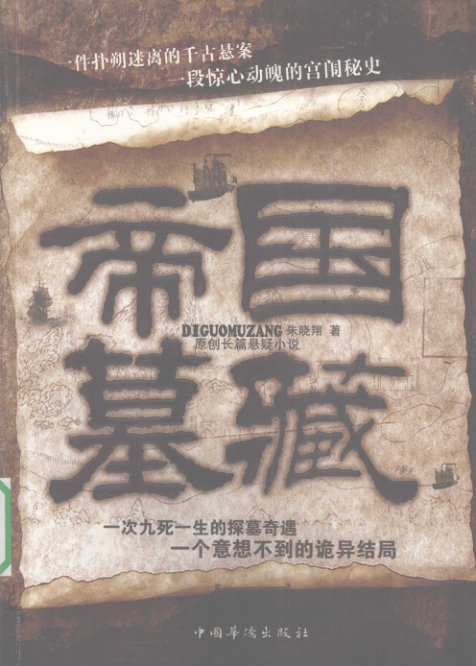 一件扑朔迷离的千古悬案
一段惊心动魄的宫闱秘史
帝国
DIGUOMUZANG 朱晓翔 著
原创长篇悬疑小说
墓藏
一次九死一生的探墓奇遇
一个意想不到的诡异结局
中国华侨出版社